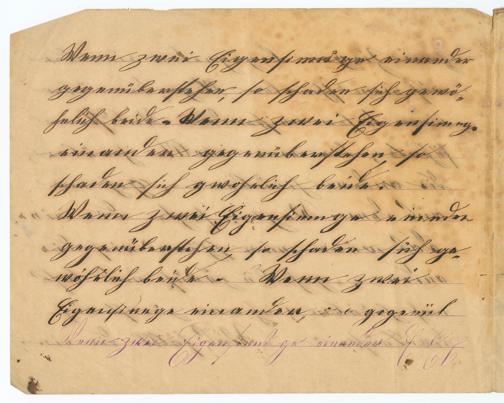 Wenn zwei Eigensinnige einander
gegenüberstehen, so schaden sich gewö-
hnlich beide. Wenn zwei Eigensinnige
einander gegenüberstehen so
schaden sich gwöhnlich beide
Wenn zwei Eigensinnige einander
gegenüberstehen, so schaden sich ge-
wöhnlich beide. Wenn zwei
Eigensinnige einander gegenüb
Wenn zwei Eigensinnige einander